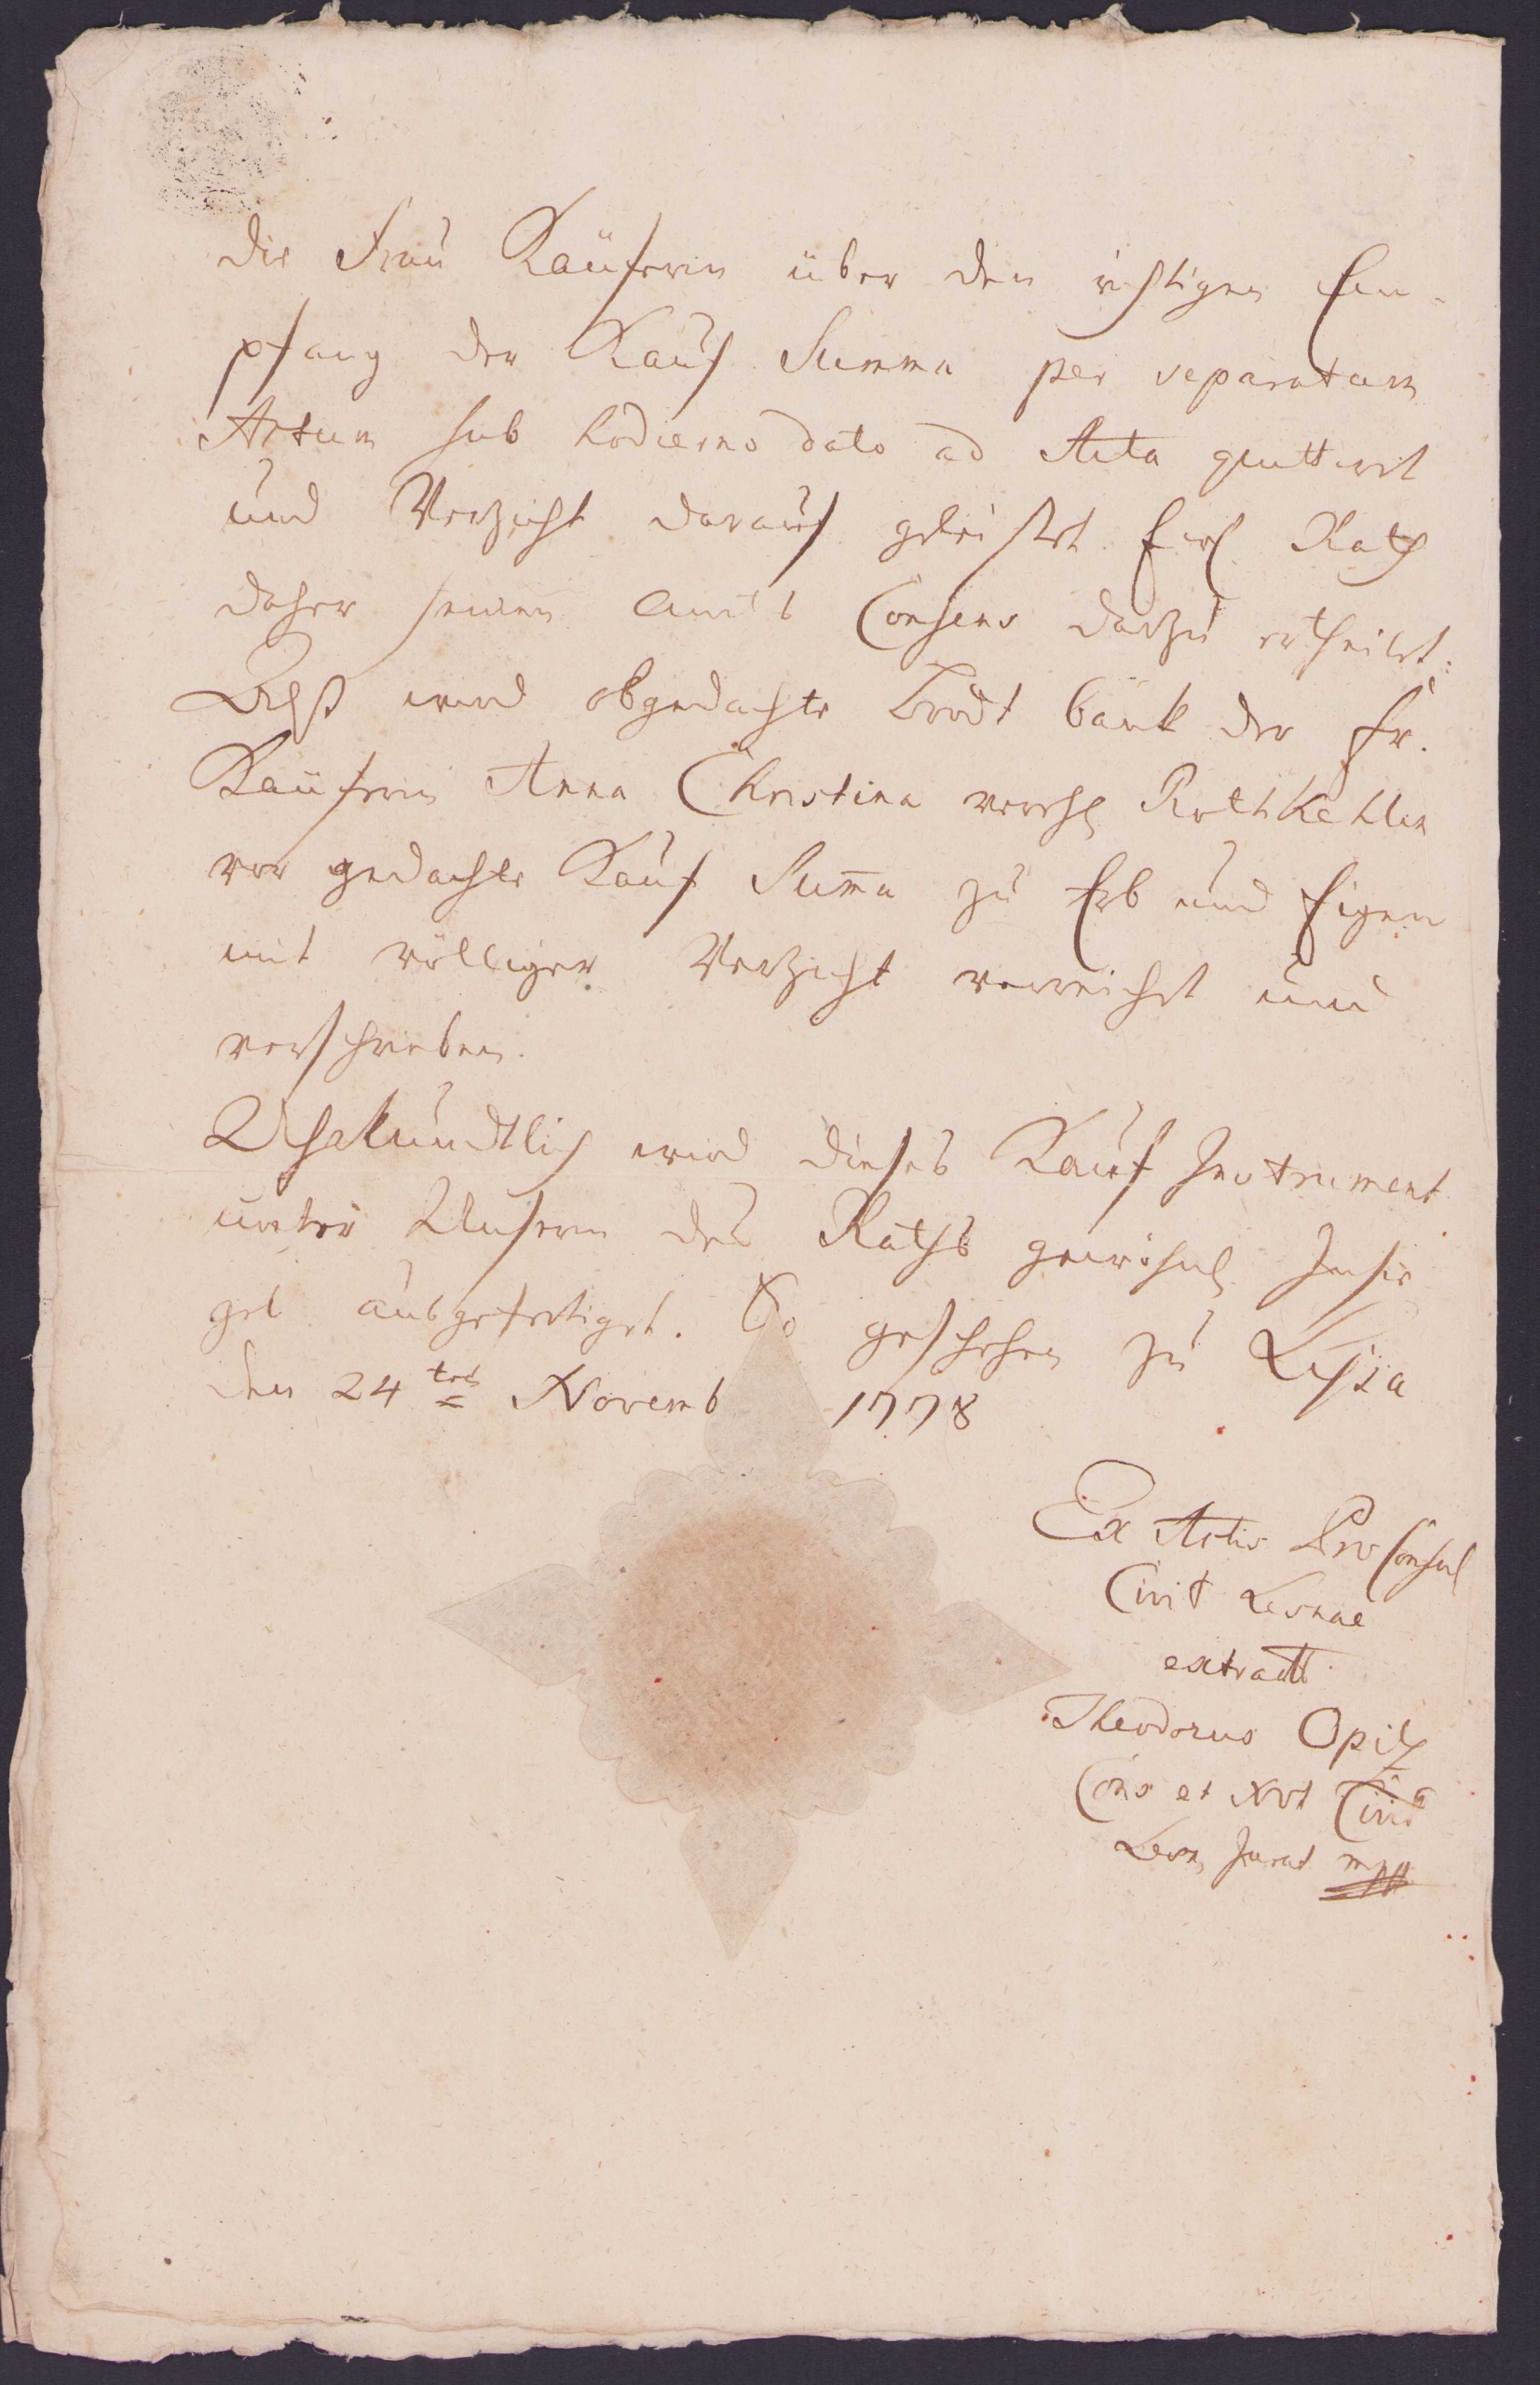 die Frau Käuferin über den richtigen Em-
pfang der Kauf Summa per separatum
Actum sub hodierno dato ad Acta quittiret
und Verzicht darauf geleistet. Ein Rath
daher seinen Amts Consens darzu ertheilet:
wird obgedachte Brodt bank der Fr.
Käuferin Anna Christina verehl Rothkehlin
vor gedachte Kauf Suma zu Erb und Eigen
mit völliger Verzicht verreichet und
verschrieben.
Uhrkundtlich wird dieses Kauf Instrument
unter Unsern des Raths gewöhnl Insie
gel ausgefertiget. So geschehen zu Lissa
den 24ten Novemb 1778
Ex Actis Pro Consul
Civit Lesnae
extradt
Theodorus Opitz
Cons et Not Civit
Lesn Jurat mpp